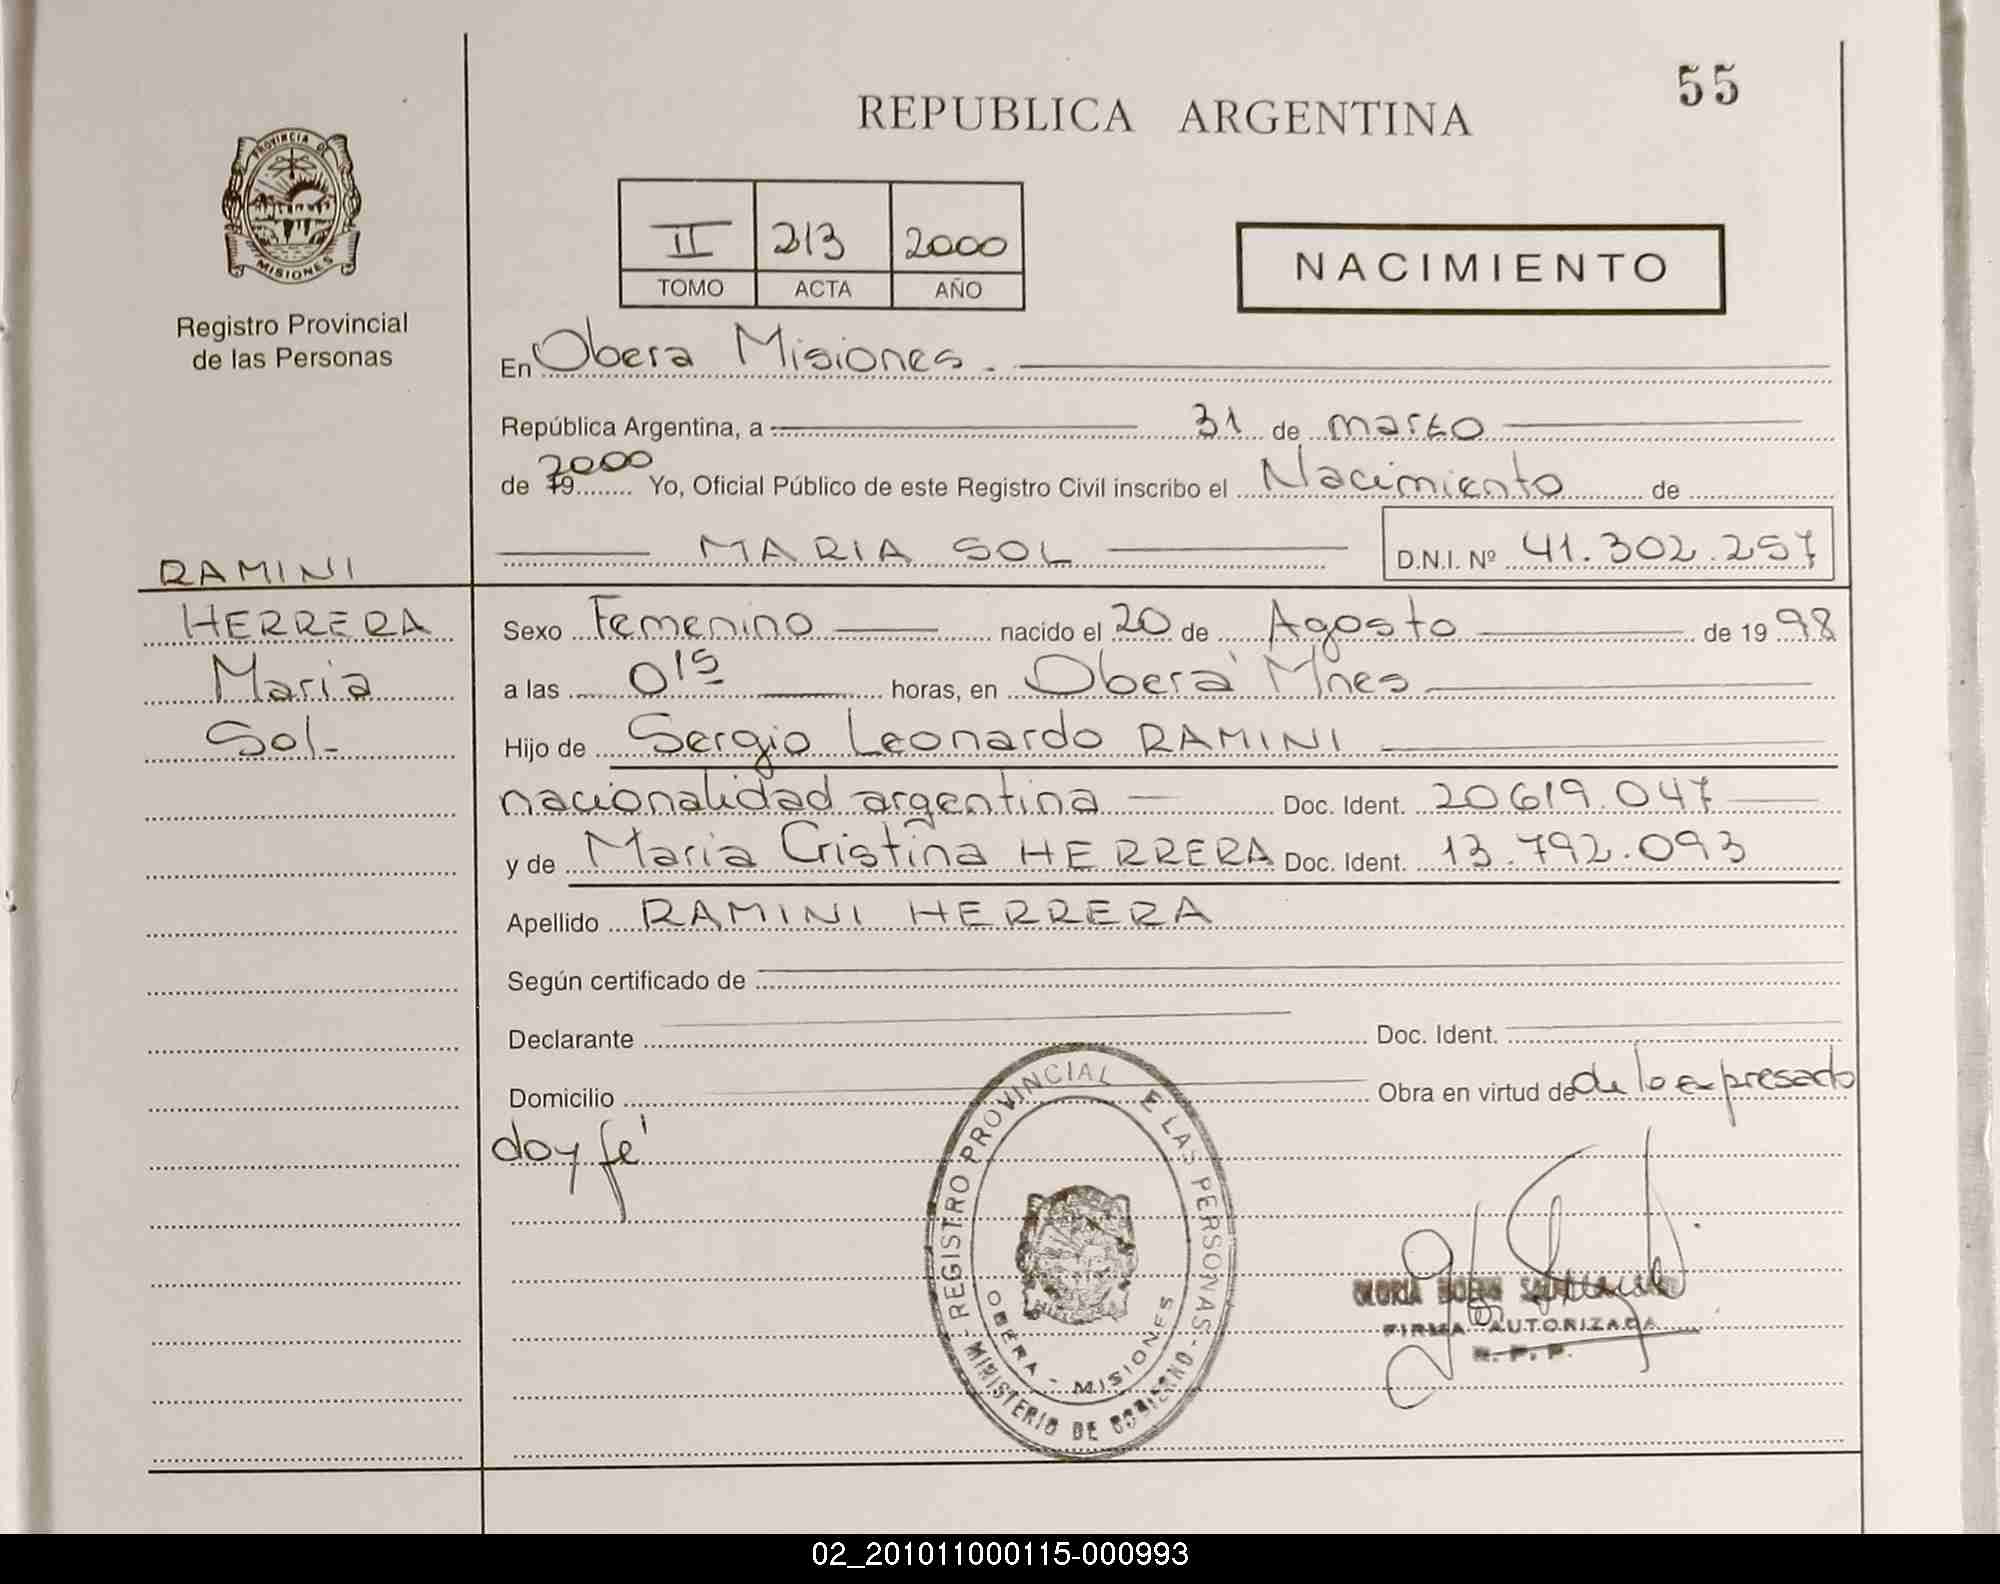 55
REPUBLICA ARGENTINA
PROVINCIA DE
MISIONES
Registro Provincial
de las Personas
II 213 2000
TOMO ACTA AÑO
NACIMIENTO
En Obera Misiones.
República Argentina, a 31 de marzo
de 19 2000 Yo, Oficial Público de este Registro Civil inscribo el Nacimiento de
MARIA SOL D.N.I. Nº 41.302.257
RAMINI
HERRERA
Maria
Sol-
Sexo Femenino nacido el 20 de Agosto de 19 98
a las 0 15 horas, en Oberá Mnes
Hijo de Sergio Leonardo RAMINI
nacionalidad argentina — Doc. Ident. 20619.047
y de Maria Cristina HERRERA Doc. Ident. 13.792.093
Apellido RAMINI HERRERA
Según certificado de
Declarante Doc. Ident.
Domicilio Obra en virtud de de lo expresado
doy fé
REGISTRO PROVINCIAL E LAS PERSONAS -
MINISTERIO DE GOBIERNO -
OBERA - MISIONES
GLORIA
FIRMA AUTORIZADA
R. P. P.
02_201011000115-000993